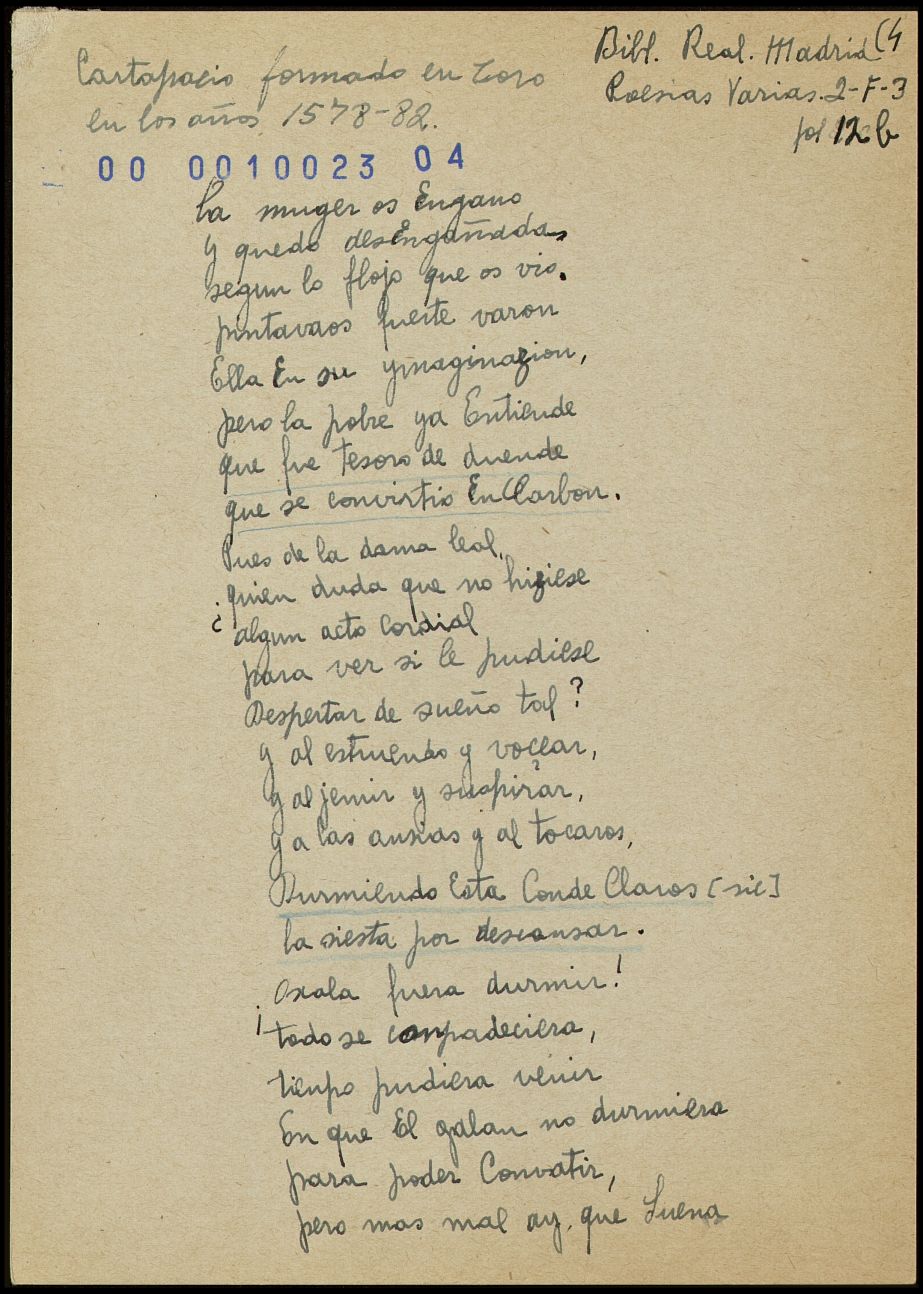 Cartapacio formado en Toro
en los años 1578-82.
Bibl. Real. Madrid (4
Poesias Varias. 2-F-3
fol 12 b
00 0010023 04
la muger os Engano
y quedo desEngañada,
segun lo flojo que os vio.
pintavaos fuerte varon
Ella En su ymaginazion,
pero la pobre ya Entiende
que fue tesoro de duende
que se convirtio En Carbon.
Pues de la dama leal,
¿quien duda que no hiziese
algun acto cordial
para ver si le pudiese
Despertar de sueño tal?
y al estruendo y vocear,
y al jemir y suspirar,
y a las ansias y al tocaros,
Durmiendo Esta Conde Claros [sic]
la siesta por descansar.
oxala fuera durmir!
¡todo se conpadeciera,
tienpo pudiera venir
En que El galan no durmiera
para poder Convatir,
pero mas mal ay que Suena